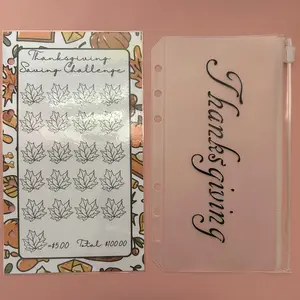 Thanksgiving
Saving Challenge
=$5.00 Total $100.00
Thanksgiving